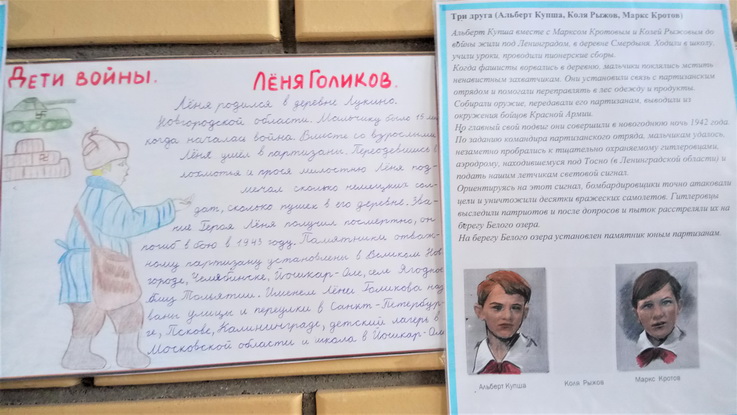 ДЕТИ ВОЙНЫ. ЛЁНЯ ГОЛИКОВ.
Лёня родился в деревне Лукино.
Новгородской области. Мальчику было 15 лет
когда началась война. Вместе со взрослыми
Лёня ушёл в партизаны. Переодевшись в
лохмотья и прося милостыню Лёня под-
мечал сколько немецких сол-
дат, сколько пушек в его деревне. Зва-
ние Героя Лёня получил посмертно, он
погиб в бою в 1943 году. Памятники отваж-
ному партизану установлены в Великом Нов-
городе, Челябинске, Йошкар-Оле, селе Ягодное
близ Тольятти. Именем Лёни Голикова наз
ваны улицы и переулки в Санкт-Петербур-
ге, Пскове, Калининграде, детский лагерь в
Московской области и школа в Йошкар-Оле
Три друга (Альберт Купша, Коля Рыжов, Маркс Кротов)
Альберт Купша вместе с Марксом Кротовым и Колей Рыжовым до
войны жили под Ленинградом, в деревне Смердыня. Ходили в школу,
учили уроки, проводили пионерские сборы.
Когда фашисты ворвались в деревню, мальчики поклялись мстить
ненавистным захватчикам. Они установили связь с партизанским
отрядом и помогали переправлять в лес одежду и продукты.
Собирали оружие, передавали его партизанам, выводили из
окружения бойцов Красной Армии.
Но главный свой подвиг они совершили в новогоднюю ночь 1942 года.
По заданию командира партизанского отряда, мальчикам удалось,
незаметно пробрались к тщательно охраняемому гитлеровцами,
аэродрому, находившемуся под Тосно (в Ленинградской области) и
подать нашим летчикам световой сигнал.
Ориентируясь на этот сигнал, бомбардировщики точно атаковали
цели и уничтожили десятки вражеских самолетов. Гитлеровцы
выследили патриотов и после допросов и пыток расстреляли их на
берегу Белого озера.
На берегу Белого озера установлен памятник юным партизанам.
Альберт Купша Коля Рыжов Маркс Кротов